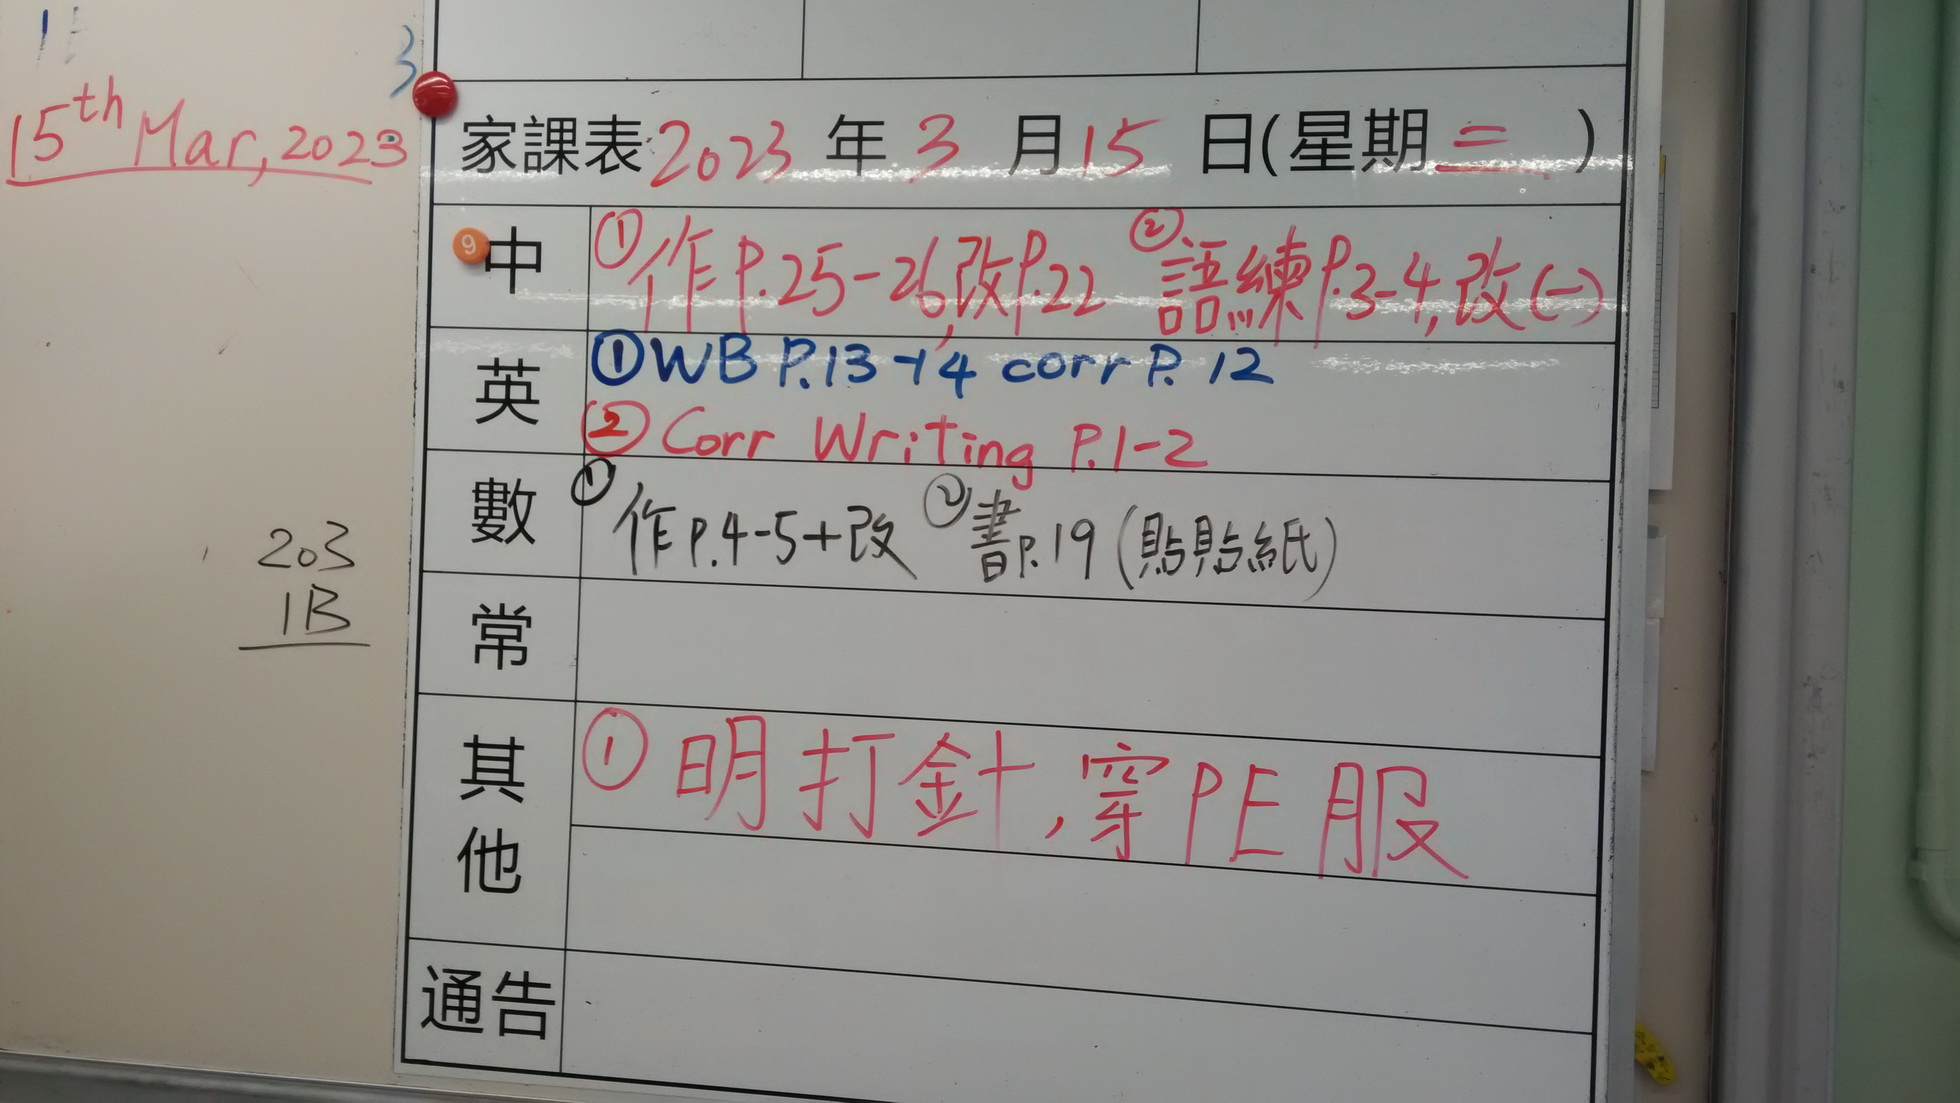 3
15th Mar, 2023
家課表 2023 年 3 月 15 日(星期 三 )
9
中 ① 作P.25-26,改P.22 ② 語練P.3-4,改(一)
英 ① WB P.13-14 corr P. 12
② Corr Writing P.1-2
數 ① 作P.4-5+改 ② 書P.19 (貼貼紙)
203
1B
常
其他 ① 明打針,穿PE服
通告